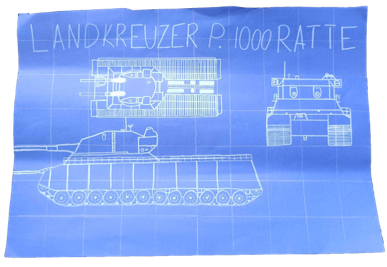 LANDKREUZER P. 1000 RATTE